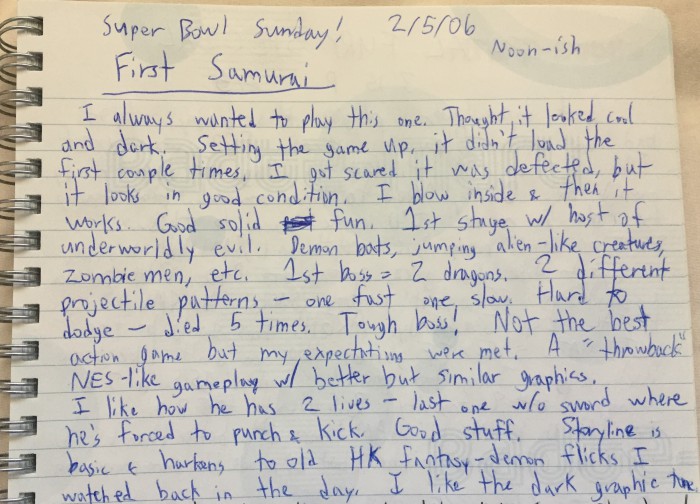 Super Bowl Sunday! 2/5/06
Noon-ish
First Samurai
I always wanted to play this one. Thought it looked cool
and dark. Setting the game up, it didn't load the
first couple times. I got scared it was defected, but
it looks in good condition. I blow inside & then it
works. Good solid fun. 1st stage w/ host of
underworldly evil. Demon bats, jumping alien-like creatures,
zombie men, etc. 1st boss = 2 dragons. 2 different
projectile patterns - one fast one slow. Hard to
dodge - died 5 times. Tough boss! Not the best
action game but my expectations were met. A "throwback"
NES-like gameplay w/ better but similar graphics.
I like how he has 2 lives - last one w/o sword where
he's forced to punch & kick. Good stuff. Storyline is
basic & harkens to old HK fantasy-demon flicks I
watched back in the day. I like the dark graphic